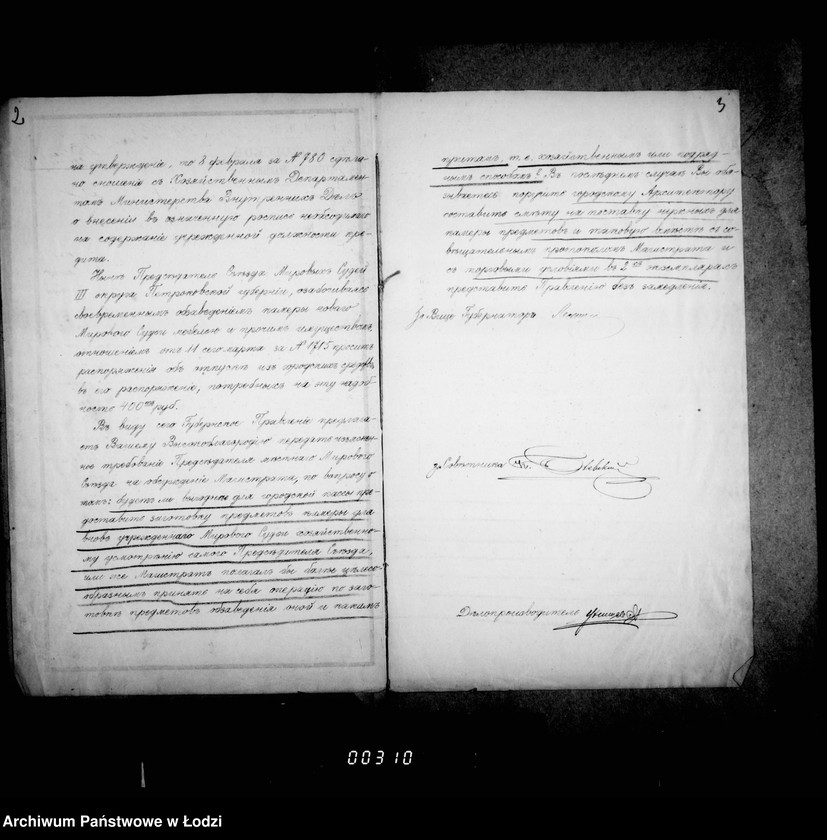 2
на утвержденіе, то 8 февраля за № 780 сдѣла-
но сношеніе съ Хозяйственнымъ Департамен-
томъ Министерства Внутреннихъ Дѣлъ
о внесеніи въ роспись необходимаго
на содержаніе учрежденной должности кре-
дита.
Нынѣ Предсѣдатель Съѣзда Мировыхъ Судей
III округа, Петроковской губерніи, озабочиваясь
своевременнымъ обзаведеніемъ камеры новаго
Мирового Судьи мебелью и прочимъ имуществомъ,
отношеніемъ отъ 11 сего марта за № 1715 проситъ
распоряженія объ отпускѣ изъ городскихъ средствъ
въ его распоряженіе, потребныхъ на эту надоб-
ность 400 руб.
Въ виду сего Губернское Правленіе предлага-
етъ Вашему Высокоблагородію передать изъяснен-
ное требованіе Предсѣдателя мѣстнаго Мирового
Съѣзда на обсужденіе Магистрата, по вопросу о
томъ: будетъ ли выгодно для городской кассы пре-
доставить заготовку предметовъ камеры для
вновь учрежденнаго Мирового Судьи хозяйственно-
му усмотрѣнію самого Предсѣдателя Съѣзда,
или же Магистратъ полагалъ бы болѣе цѣлесо-
образнымъ принять на себя операцію по заго-
товкѣ предметовъ обзаведенія оной и какимъ
3
т. е. хозяйственнымъ или подряд-
нымъ способомъ? Въ послѣднемъ случаѣ Вы обя-
зываетесь поручить городскому Архитектору
составить смѣту на поставку нужныхъ для
камеры предметовъ и таковую вмѣстѣ съ со-
вѣщательнымъ протоколомъ Магистрата и
съ торговыми условіями въ 2 экземплярахъ
представить Правленію безъ замедленія.
За Вице Губернатора
За Совѣтника
Дѣлопроизводитель
00310
Archiwum Państwowe w Łodzi